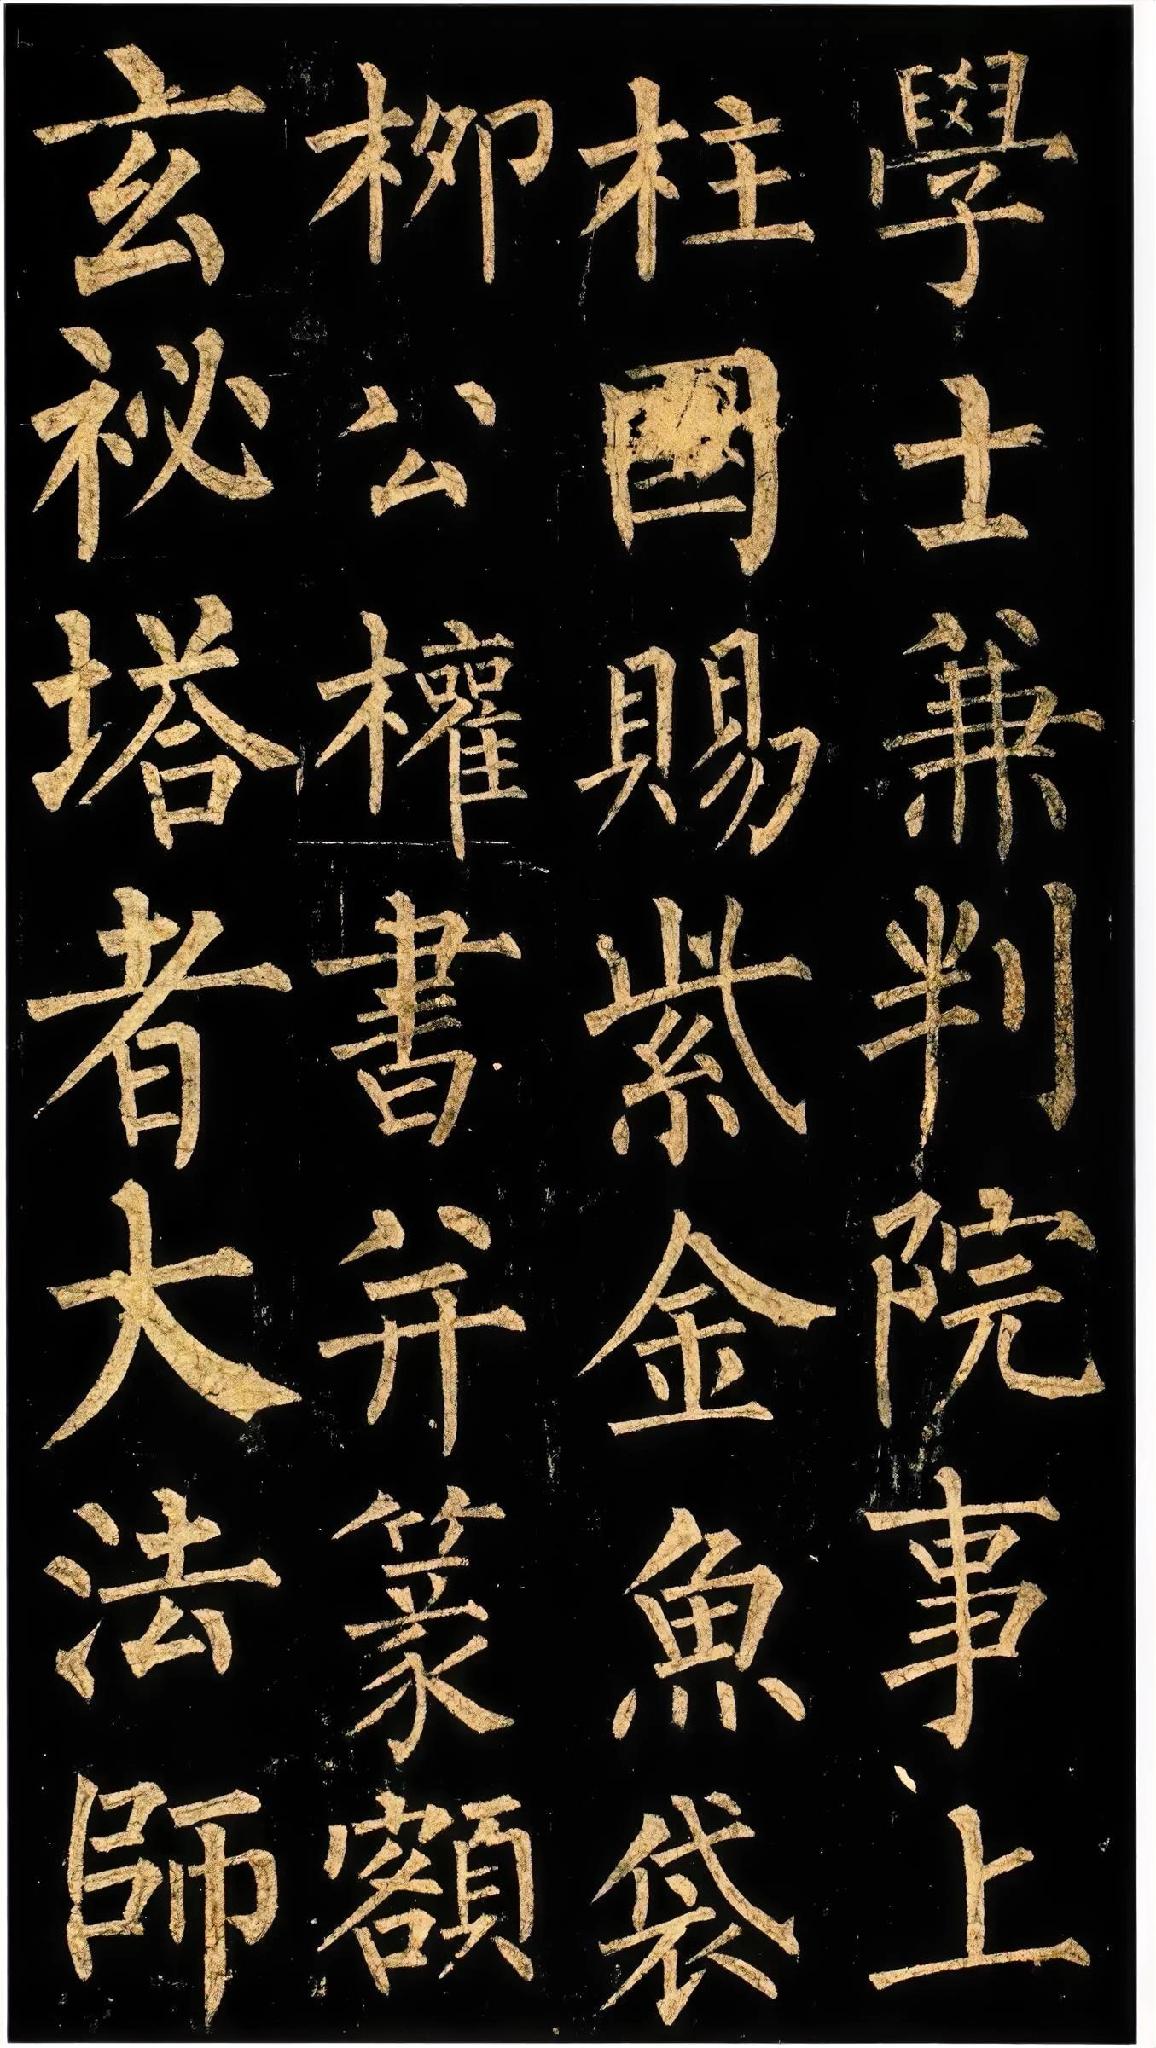 學士兼判院事上
柱國賜紫金魚袋
柳公權書并篆額
玄祕塔者大法師